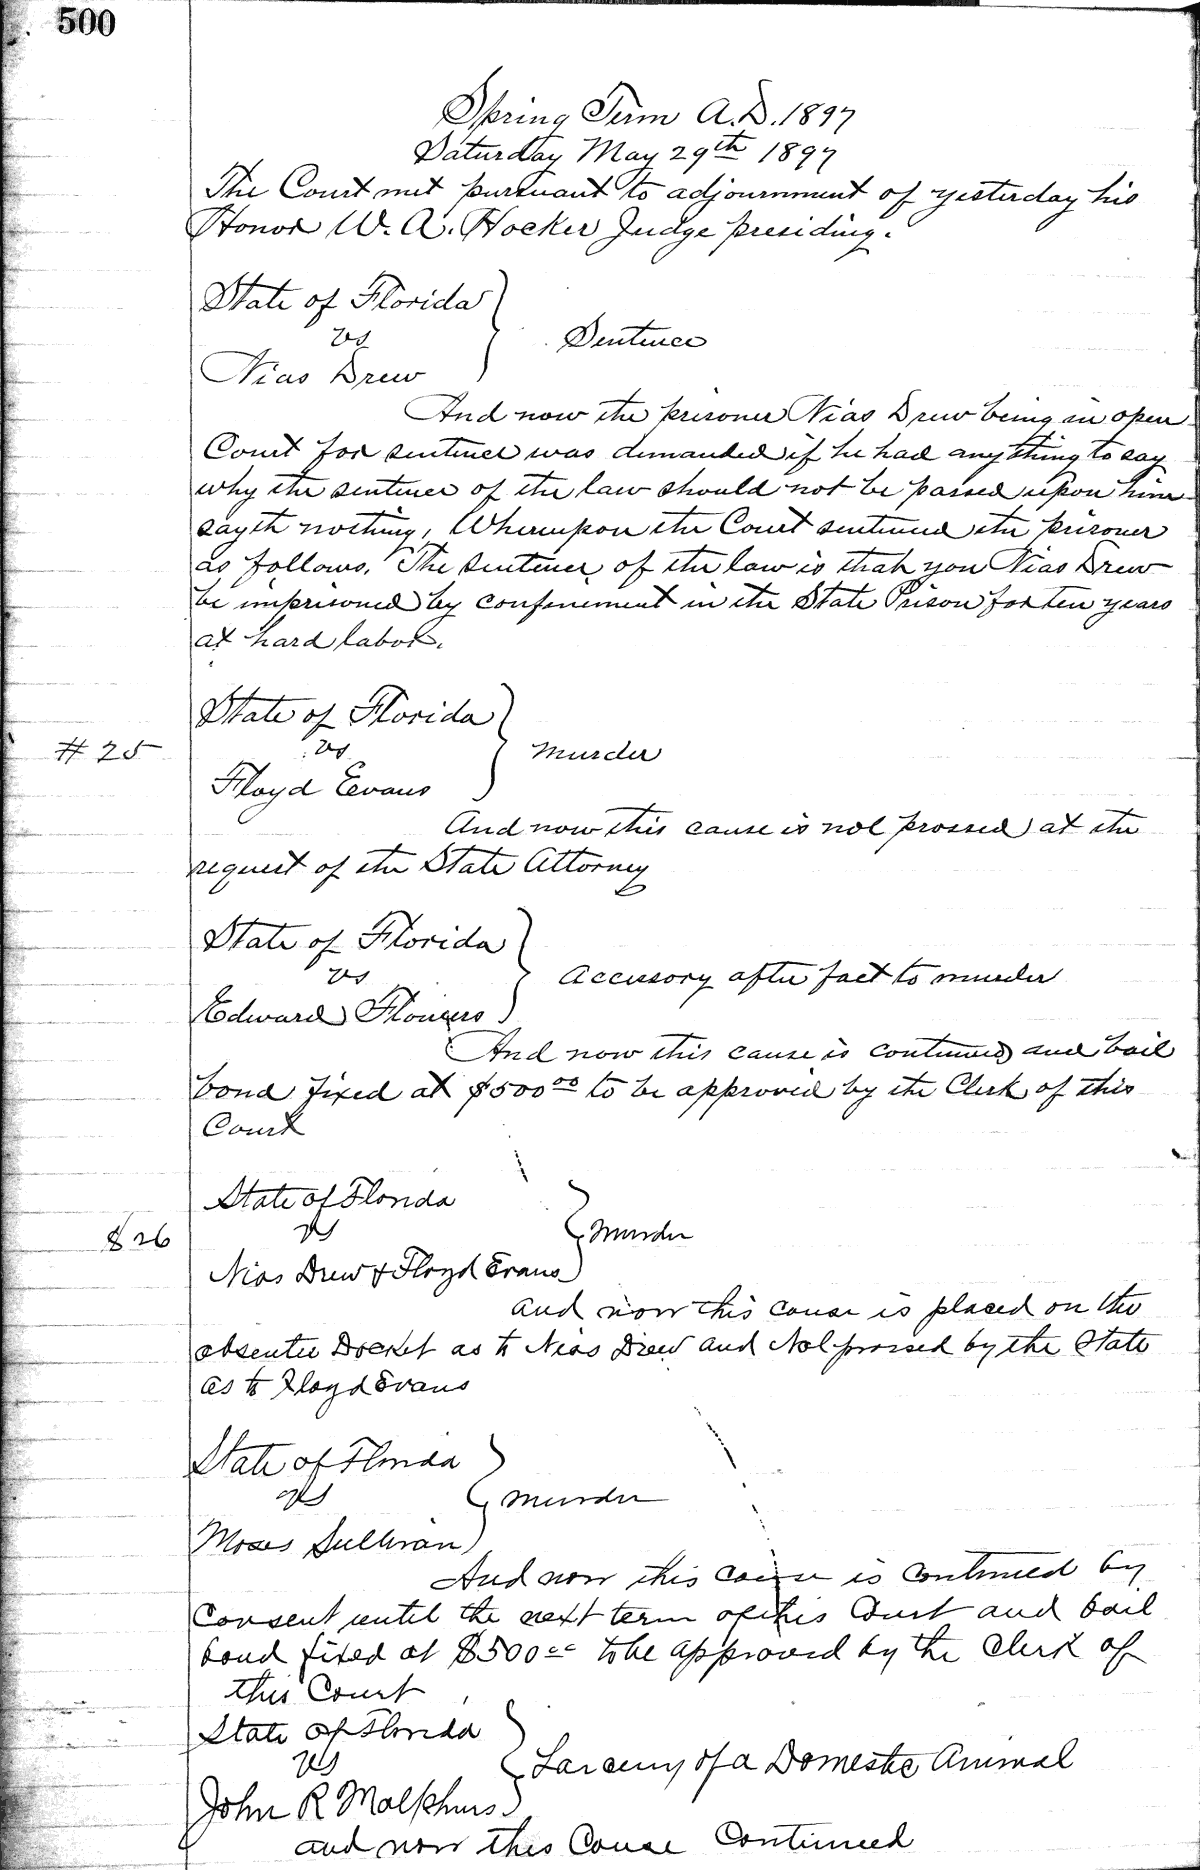 500
Spring Term A.D. 1897
Saturday May 29th 1897
The Court met pursuant to adjournment of yesterday his
Honor W. A. Hocker Judge presiding.
State of Florida
vs
Sentence
Nias Drew
And now the prisoner Nias Drew being in open
Court for sentence was demanded if he had anything to say
why the sentence of the law should not be passed upon him
sayth nothing, Whereupon the Court sentenced the prisoner
as follows. The sentence of the law is that you Nias Drew
be imprisoned by confinement in the State Prison for ten years
at hard labor.
State of Florida
# 25
vs
Murder
Floyd Evans
And now this cause is nol prossed at the
request of the State Attorney
State of Florida
vs
Accessory after fact to murder
Edward Flowers
And now this cause is continued and bail
bond fixed at $500 00 to be approved by the Clerk of this
Court
State of Florida
$ 26
vs
Murder
Nias Drew & Floyd Evans
and now this cause is placed on the
absentee Docket as to Nias Drew and Nol prossed by the State
as to Floyd Evans
State of Florida
vs
Murder
Moses Sullivan
And now this cause is continued by
consent until the next term of this Court and bail
bond fixed at $500 00 to be approved by the Clerk of
this Court
State of Florida
vs
Larceny of a Domestic Animal
John R Malphurs
and now this Cause Continued